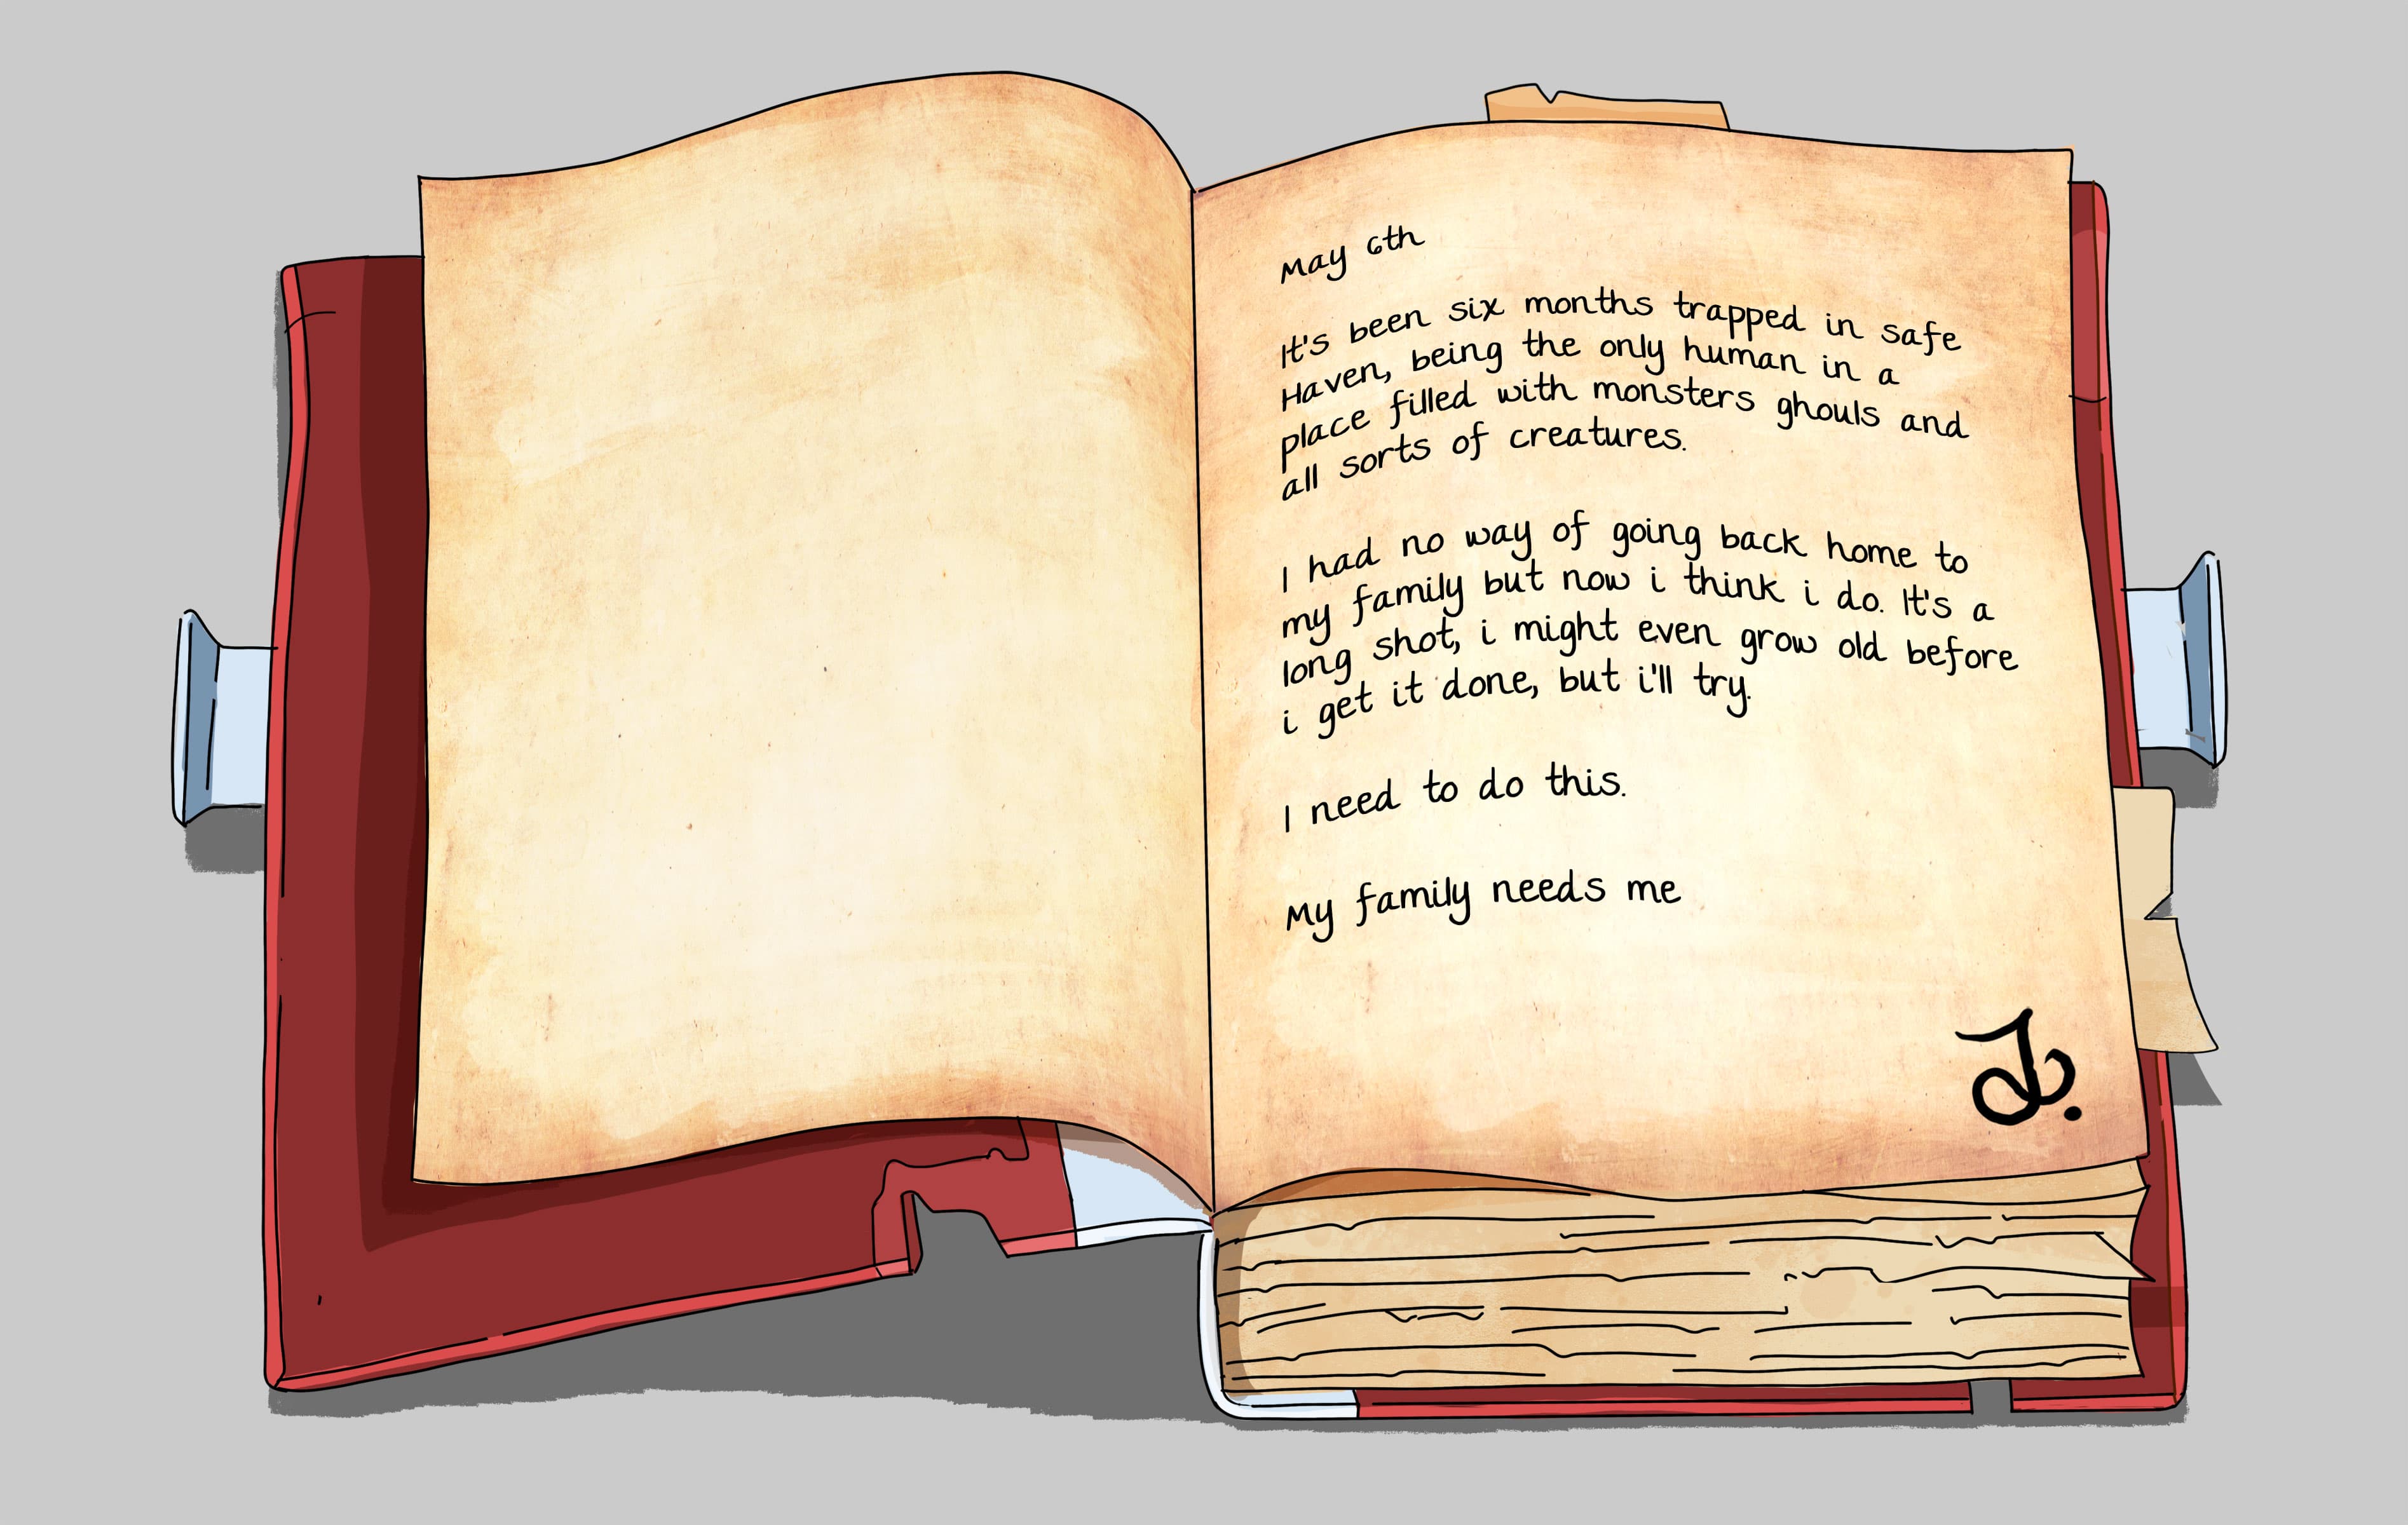 May 6th
It's been six months trapped in safe
Haven, being the only human in a
place filled with monsters ghouls and
all sorts of creatures.
I had no way of going back home to
my family but now i think i do. It's a
long shot, i might even grow old before
i get it done, but i'll try.
I need to do this.
My family needs me